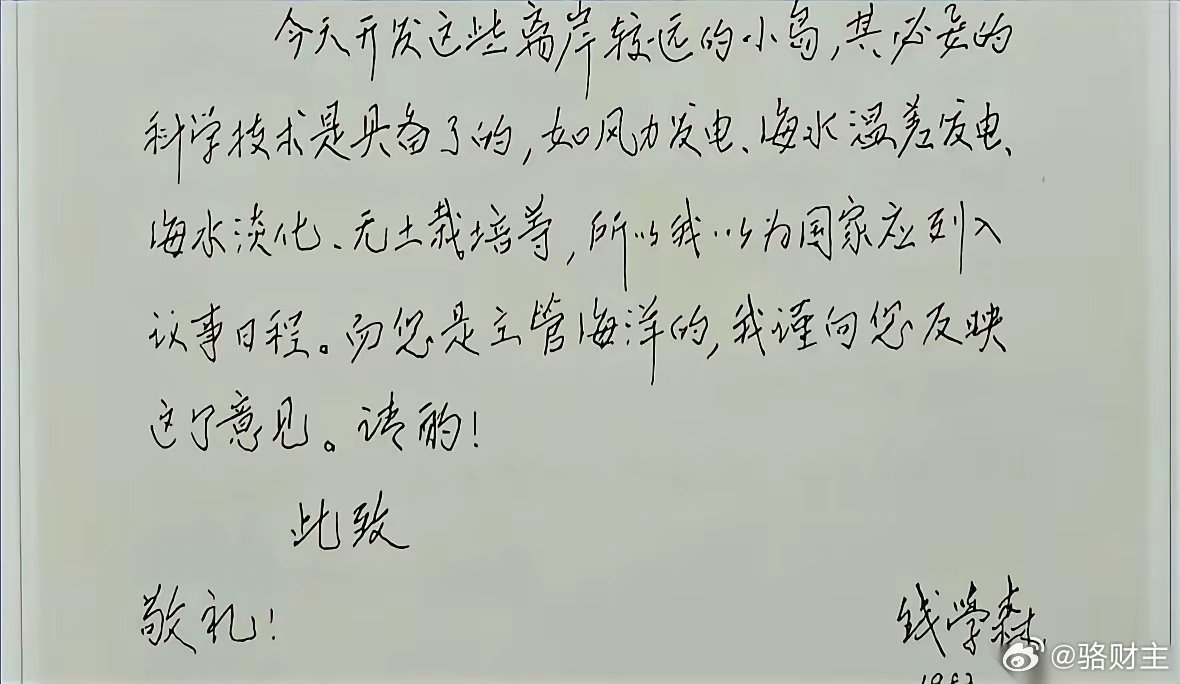 今天开发这些离岸较远的小岛,其必要的
科学技术是具备了的,如风力发电、海水温差发电、
海水淡化、无土栽培等,所以我以为国家应列入
议事日程。而您是主管海洋的,我谨向您反映
这个意见。请酌!
此致
敬礼!
钱学森
@骆财主